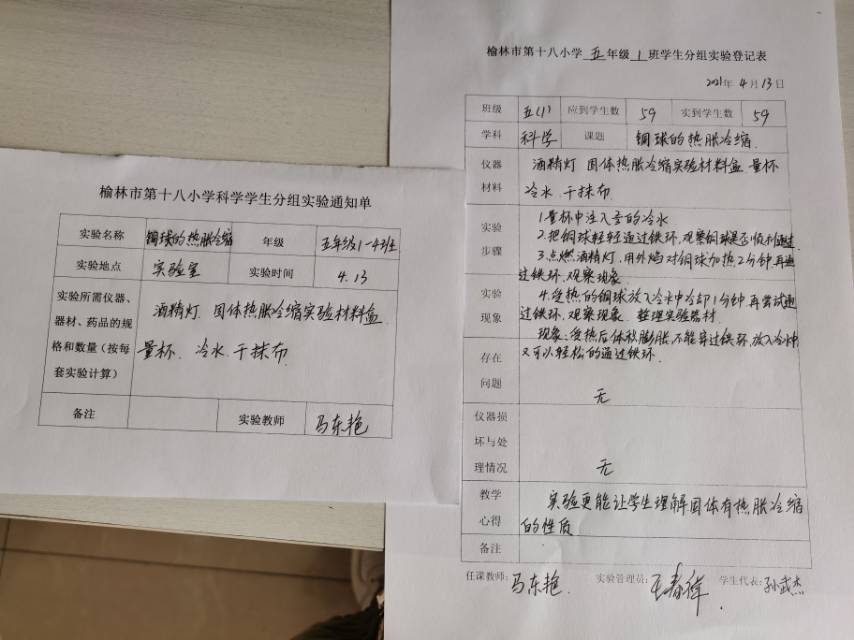 榆林市第十八小学科学学生分组实验通知单
实验名称 铜球的热胀冷缩 年级 五年级1-4班
实验地点 实验室 实验时间 4.13
实验所需仪器、
器材、药品的规
格和数量（按每
套实验计算）
酒精灯 固体热胀冷缩实验材料盒
量杯 冷水 干抹布
备注 实验教师 马东艳
榆林市第十八小学 五 年级 1 班学生分组实验登记表
2021年 4 月 13 日
班级 五(1) 应到学生数 59 实到学生数 59
学科 科学 课题 铜球的热胀冷缩.
仪器
材料
酒精灯 固体热胀冷缩实验材料盒 量杯
冷水 干抹布
实验
步骤
1.量杯中注入 的冷水
2.把铜球轻轻通过铁环,观察铜球是否顺利通过.
3.点燃酒精灯,用外焰对铜球加热2分钟,再通
过铁环,观察现象
实验
现象
4.受热的铜球放入冷水中冷却1分钟,再尝试通
过铁环,观察现象 整理实验器材.
现象:受热后体积膨胀,不能穿过铁环,放入冷水中
又可以轻松的通过铁环.
存在
问题
无
仪器损
坏与处
理情况
无
教学
心得
实验更能让学生理解固体有热胀冷缩
的性质
备注
任课教师: 马东艳. 实验管理员: 学生代表: 孙武杰